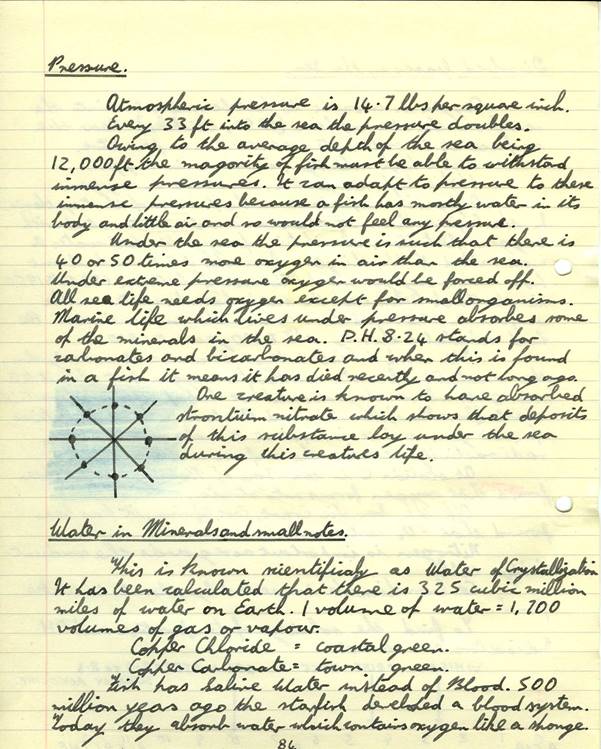 Pressure.
Atmospheric pressure is 14.7 lbs per square inch.
Every 33 ft into the sea the pressure doubles.
Owing to the average depth of the sea being
12,000 ft the magority of fish must be able to withstand
immense pressures. It can adapt to pressure to these
immense pressures because a fish has mostly water in its
body and little air and so would not feel any pressure.
Under the sea the pressure is such that there is
40 or 50 times more oxygen in air than the sea.
Under extreme pressure oxygen would be forced off.
All sea life needs oxygen except for small organisms.
Marine life which lives under pressure absorbes some
of the minerals in the sea. P.H. 8.24 stands for
carbonates and bicarbonates and when this is found
in a fish it means it has died recently and not long ago.
One creature is known to have absorbed
strontium nitrate which shows that deposits
of this substance lay under the sea
during this creatures life.
Water in Minerals and small notes.
This is known scientificaly as Water of Crystallization
It has been calculated that there is 325 cubic million
miles of water on Earth. 1 volume of water = 1,700
volumes of gas or vapour.
Copper Chloride = coastal green.
Copper Carbonate = town green.
Fish has Saline Water instead of Blood. 500
million years ago the starfish developed a blood system.
Today they absorb water which contains oxygen like a sponge.
86